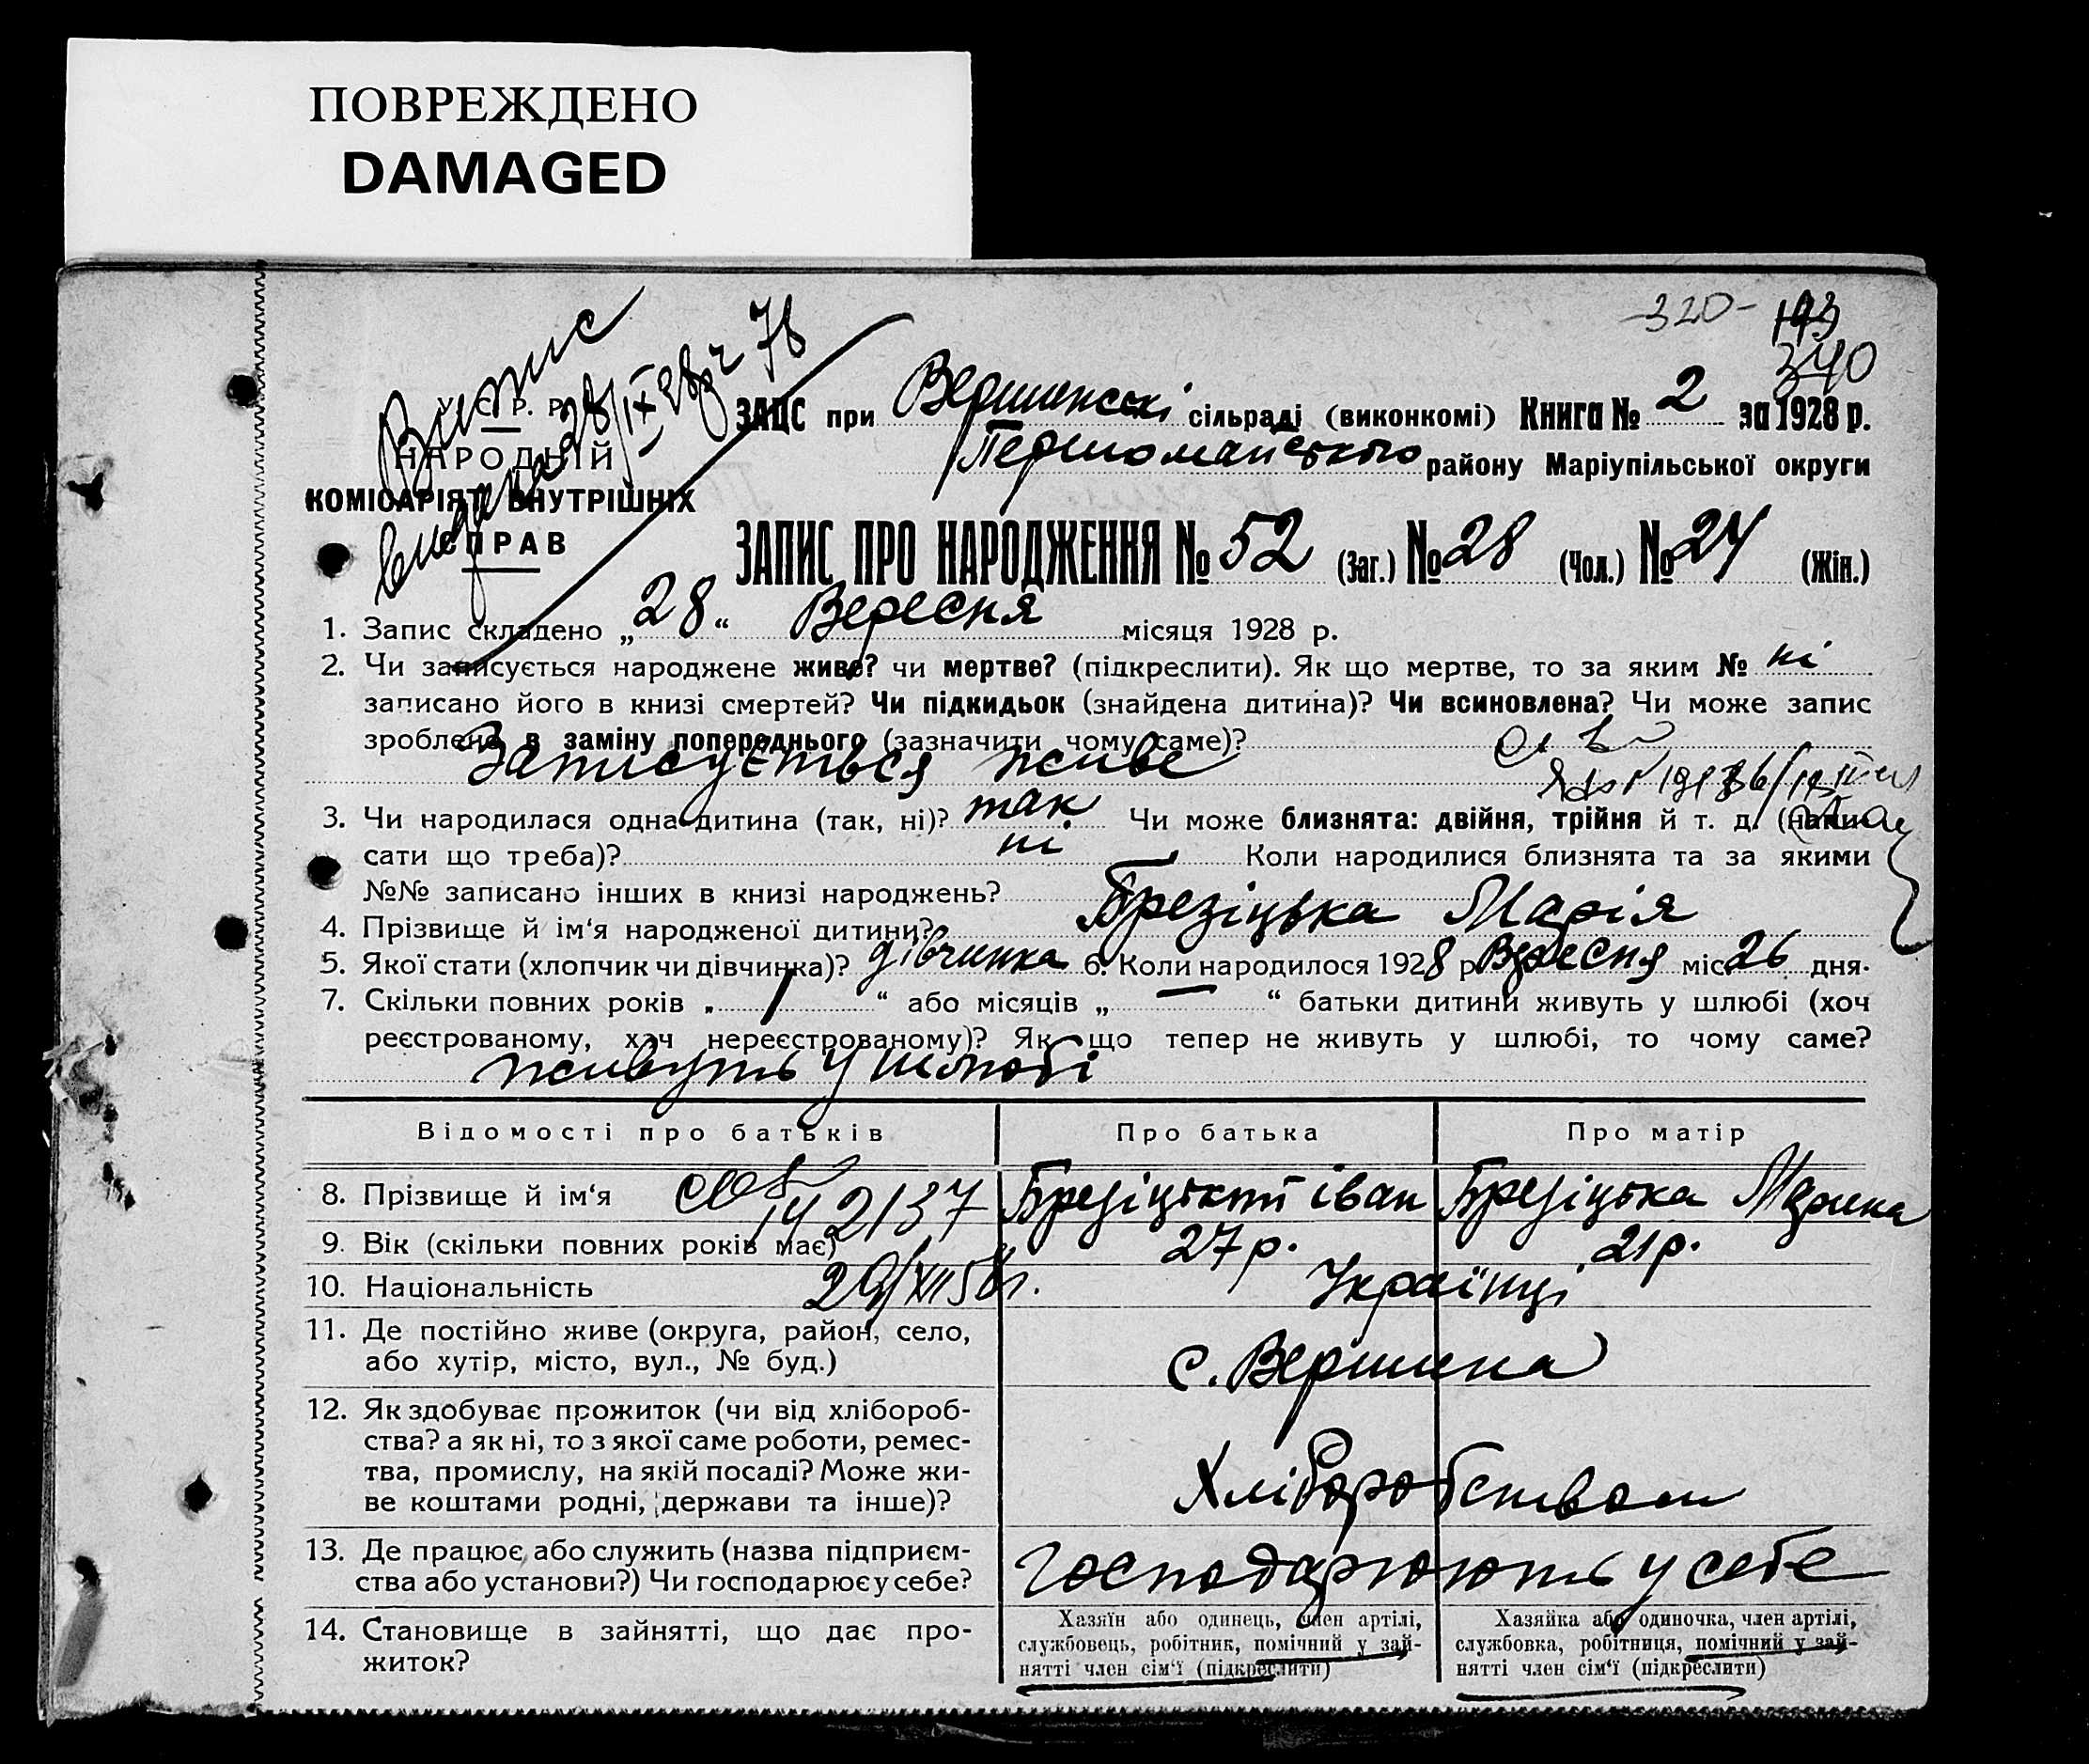 ПОВРЕЖДЕНО
DAMAGED
-320- 193
340
Витис
видана 28/IX 28р ч 78
У. С. Р. Р.
НАРОДНІЙ
КОМІСАРІЯТ ВНУТРІШНІХ
СПРАВ
ЗАЦС при Вершинскі сільраді (виконкомі) Книга № 2 за 1928 р.
Першомайського району Маріупільської округи
ЗАПИС ПРО НАРОДЖЕННЯ № 52 (Заг.) № 28 (Чол.) № 24 (Жін.)
1. Запис складено „28“ Вересня місяця 1928 р.
2. Чи записується народжене живе? чи мертве? (підкреслити). Як що мертве, то за яким № ні
записано його в книзі смертей? Чи підкидьок (знайдена дитина)? Чи всиновлена? Чи може запис
зроблено в заміну попереднього (зазначити чому саме)?
Записується живе
3. Чи народилася одна дитина (так, ні)? так Чи може близнята: двійня, трійня й т. д. (напи-
сати що треба)? ні Коли народилися близнята та за якими
№№ записано інших в книзі народжень? —
4. Прізвище й ім‘я народженої дитини? Брезіцька Марія
5. Якої стати (хлопчик чи дівчинка)? дівчинка 6. Коли народилося 1928 р. Вересня міс. 26 дня.
7. Скільки повних років „1“ або місяців „—“ батьки дитини живуть у шлюбі (хоч
реєстрованому, хоч нереєстрованому)? Як що тепер не живуть у шлюбі, то чому саме?
живуть у шлюбі
Відомості про батьків Про батька Про матір
8. Прізвище й ім‘я Брезіцький іван Брезіцька Марина
142137
9. Вік (скільки повних років має) 27 р. 21 р.
29/XII 58 г.
10. Національність Українці
11. Де постійно живе (округа, район, село,
або хутір, місто, вул., № буд.) с. Вершина
12. Як здобуває прожиток (чи від хлібороб-
ства? а як ні, то з якої саме роботи, ремес-
тва, промислу, на якій посаді? Може жи-
ве коштами родні, держави та інше)? Хліборобством
13. Де працює або служить (назва підприєм-
ства або установи?) Чи господарює у себе? Господарюють у себе
14. Становище в зайнятті, що дає про-
житок?
Хазяїн або одинець, член артілі,
службовець, робітник, помічний у зай-
нятті член сім‘ї (підкреслити)
Хазяйка або одиночка, член артілі,
службовка, робітниця, помічний у зай-
нятті член сім‘ї (підкреслити)